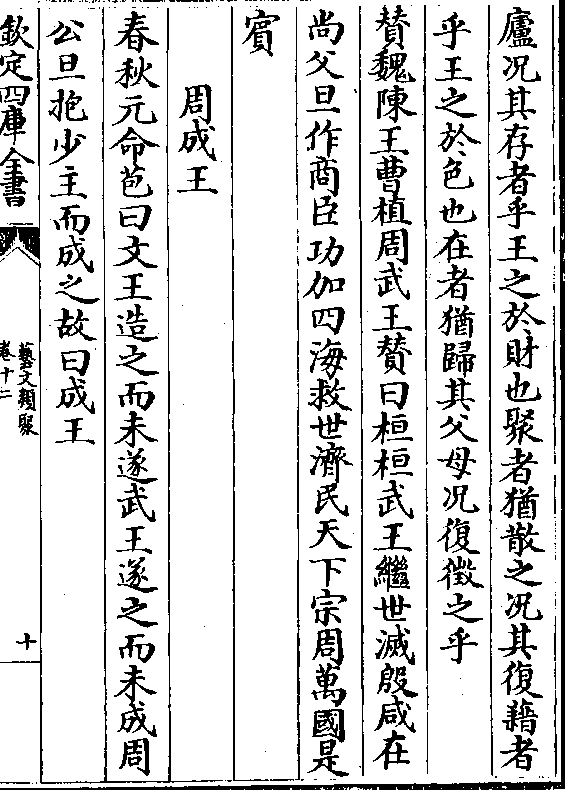 廬况其存者乎王之於財也聚者猶散之况其復藉者
乎王之於色也在者猶歸其父母况復徴之乎
賛魏陳王曹植周武王賛曰桓桓武王繼世滅殷咸在
尚父旦作商臣功加四海救世濟民天下宗周萬國是
賓
周成王
春秋元命苞曰文王造之而未遂武王遂之而未成周
公旦抱少主而成之故曰成王
欽定四庫全書
藝文類聚
卷十二
十